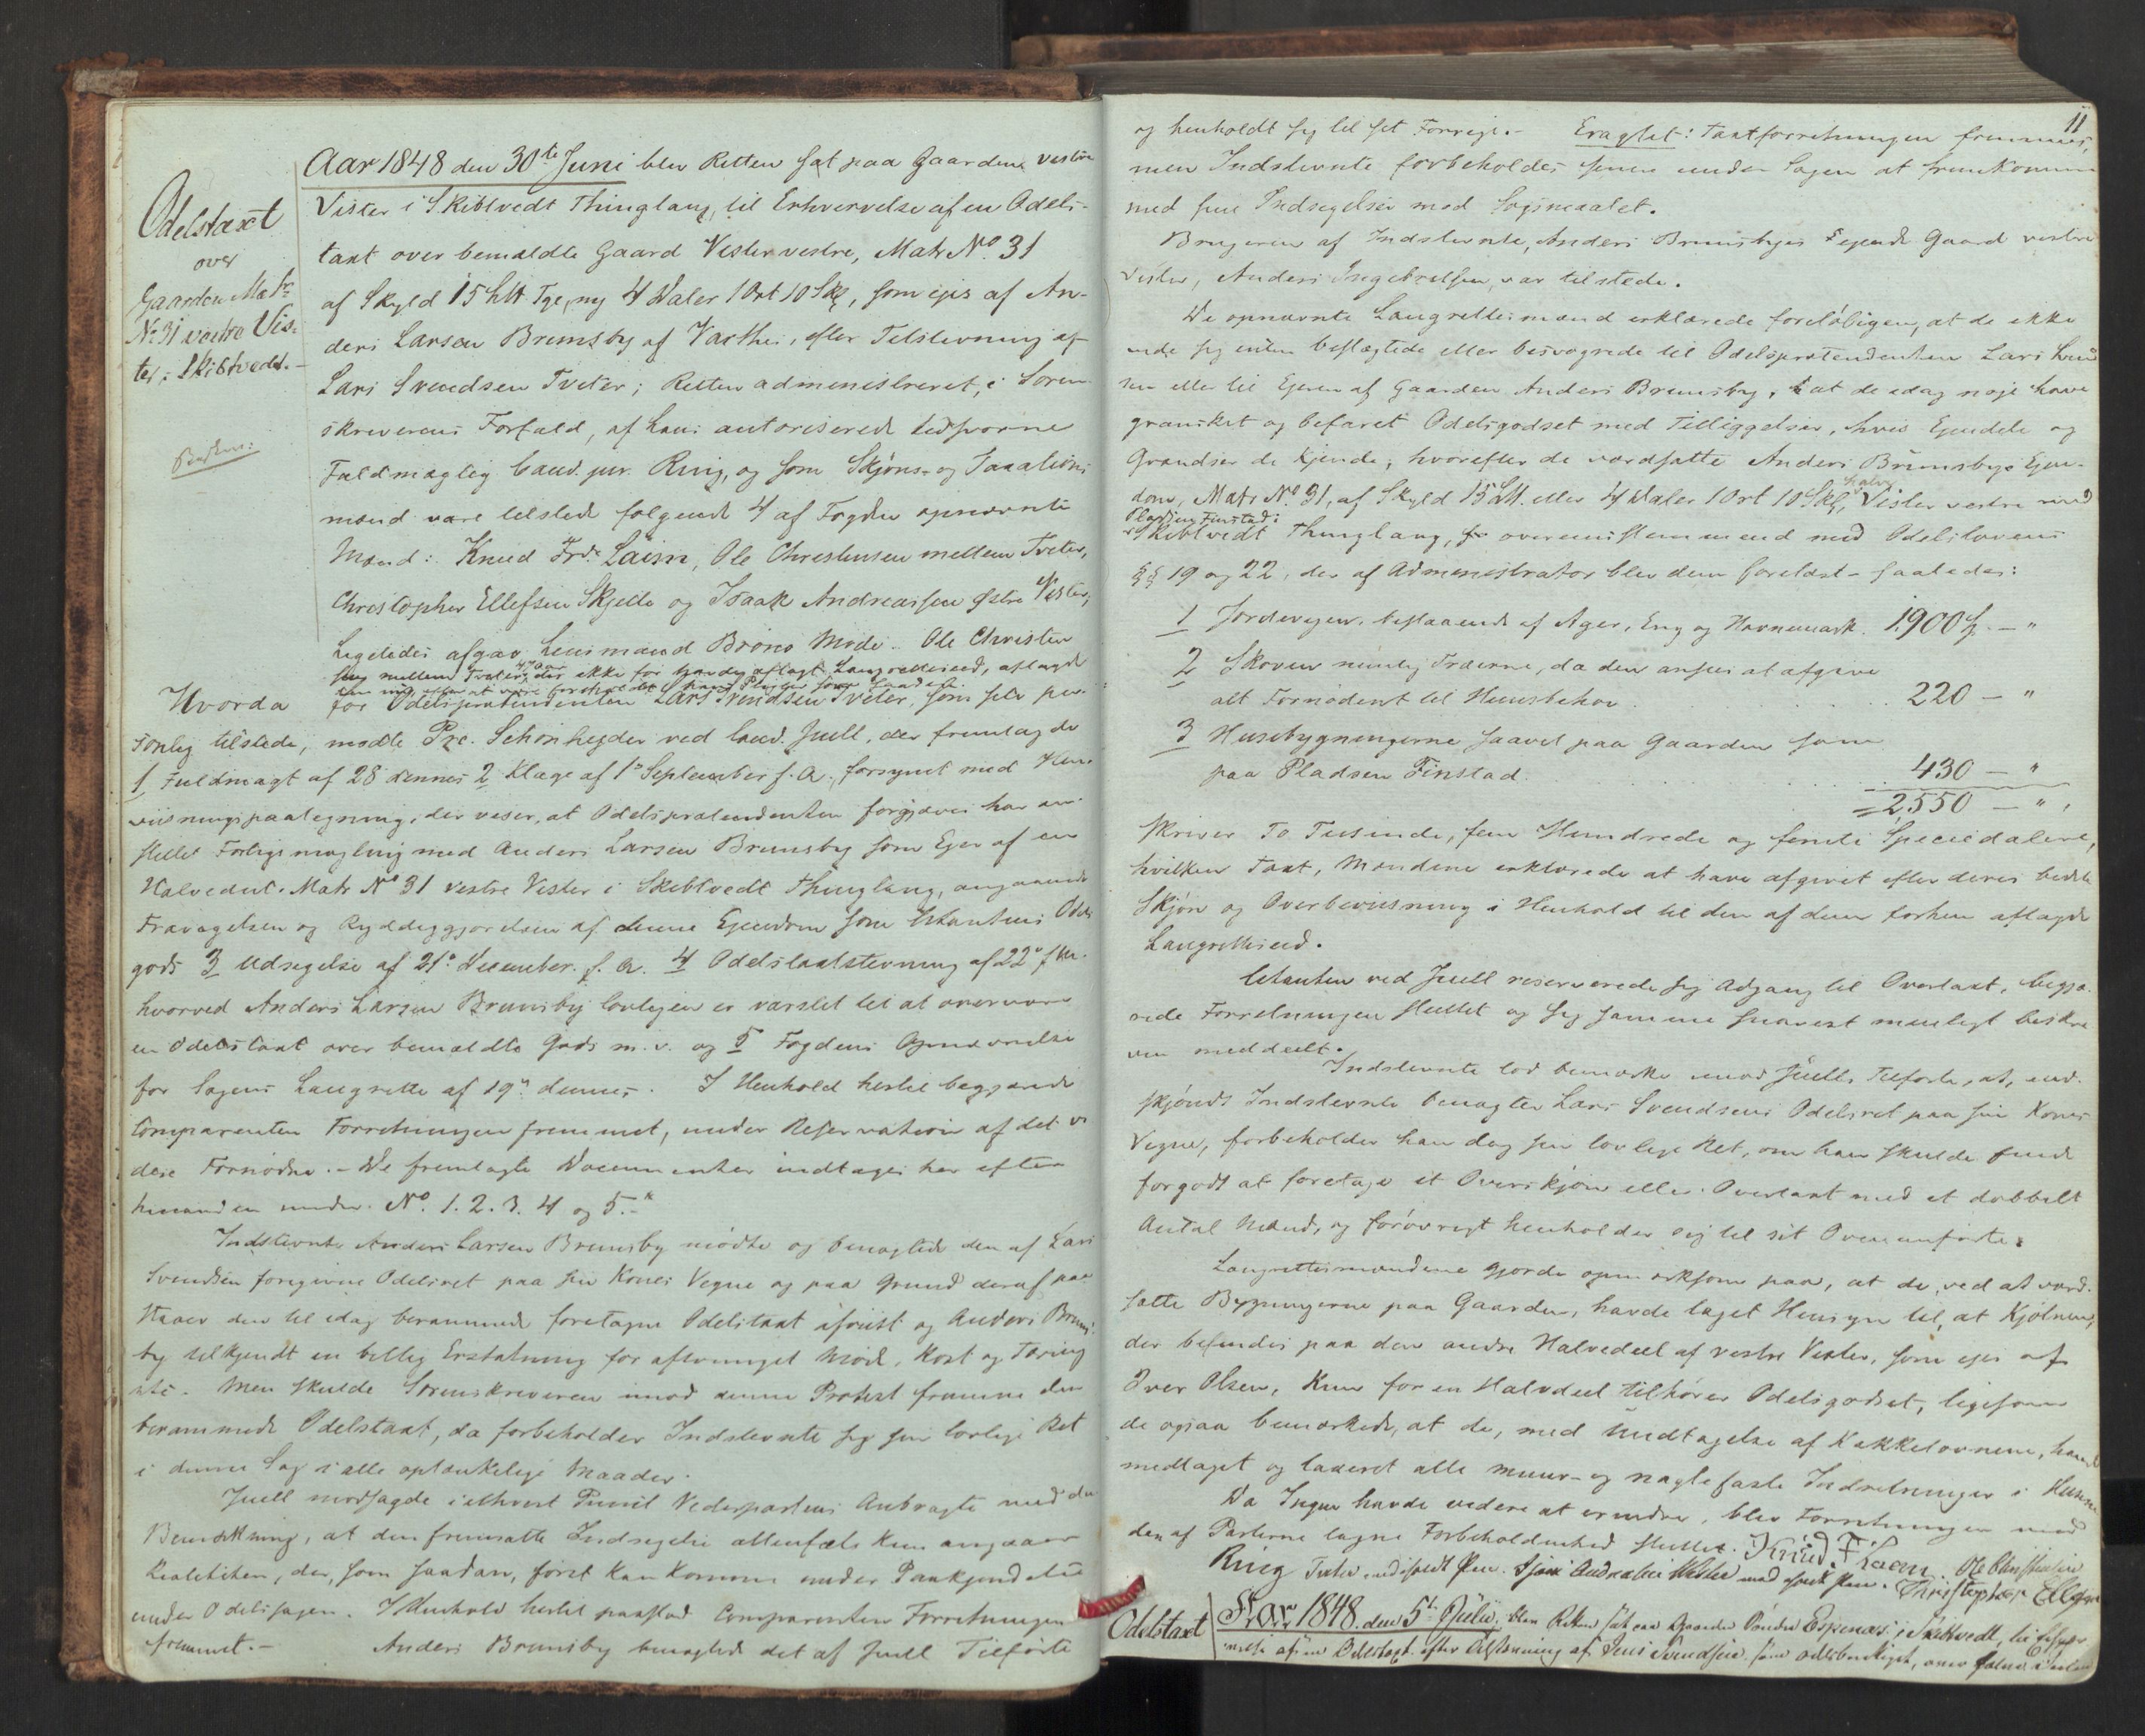 Odelstaxt
over
Gaarden Matr
No 31 vestre Vis-
ter i Skibtvedt.-
Beskrev:
Aar 1848 den 30te Juni blev Retten sat paa Gaarden vestre
Vister i Skibtvedt Thinglaug, til Erhvervelse af en Odels-
taxt over bemældte Gaard Vister vestre, Matr No. 31
af Skyld 15 Tge, ny 4 Daler 1 Ort 10 Sk, som ejes af An-
ders Larsen Brunsby af Varthei, efter Tilstevning af
Lars Svendsen Tveter; Retten administreret, i Soren-
skriverens Forfald, af hans autoriserede edsvorne
Fuldmægtig Cand. jur. Ring, og som Skjøns- og Taxations-
mænd vare tilstede følgende 4 af Fogden opnævnte
Mænd: Knud Frdr. Laism, Ole Christensen mellem Tveter,
Christopher Ellefsen Skjelle og Isaak Andreassen østre Vister,
Ligeledes afgav Lensmand Brønø Møde.- Ole Christen
sen mellem Tveter, der ikke før havde aflagt Laugrettesed, aflagde
den nu, efter at være foreholdt hans Pligter som saadan.
Hvorda for Odelsprætendenten Lars Svendsen Tveter, som selv per-
sonlig tilstede, mødte Prc. Schønheyder ved Cand. Juell, der fremlagde
1 Fuldmagt af 28 dennes 2 Klage af 1ste September f. A., forsynet med Hen-
viisningspaategning, der viser, at Odelsprætendenten forgjæves har an-
stillet Forligsmægling med Anders Larsen Brunsby som Ejer af en
Halvedeel Matr No 31 vestre Vister i Skibtvedt Thinglaug, angaaende
Fravigelsen og Ryddiggjørelsen af denne Ejendom som Citantens Odels
gods 3 Udsigelse af 21de December f. A. 4 Odelstaxtstevning af 22de f. M.
hvorved Anders Larsen Brunsby lovligen er varslet til at overvære
en Odelstaxt over bemældte Gods m. v. og 5 Fogdens Opnævnelse
for Sagens Laugrette af 19de dennes. I Henhold hertil begjærede
Comparenten Forretningen fremmet, under Reservation af det vi
dere Fornødne.- De fremlagte Documenter indtages her efter
hinanden under No. 1. 2. 3. 4 og 5.
Indstevnte Anders Larsen Brunsby mødte og benægtede den af Lars
Svendsen foregivne Odelsret paa sin Kones Vegne og paa Grund deraf paa
staaer den til idag berammede foretagne Odelstaxt afviist og Anders Bruns-
by tilkjendt en billig Erstatning for aftvunget Mød, Kost og Tæring
etc.- Men skulde Sorenskriveren imod denne Protest fremme den
berammede Odelstaxt, da forbeholder Indstevnte sig sin lovlige Ret
i denne Sag i alle optænkelige Maader.
Juell modsagde i ethvert Punct Vederpartens Anbragte med den
Bemærkning, at den fremsatte Indsigelse allenfals kun angaaer
Realiteten, der, som saadan, først kan komme under Paakjendelse
under Odelssagen. I Henhold hertil paastod Comparenten Forretningen
fremmet.- Anders Brunsby benægtede det af Juell Tilførte
11
og henholdt sig til sit Forrige.- Eragtet: Taxtforretningen fremmes,
men Indstevnte forbeholdes senere under Sagen at fremkomme
med sine Indsigelser mod Søgsmaalet.
Brugeren af Indstevnte, Anders Brunsbyes Ejende Gaard vestre
Vister, Anders Ingebretsen, var tilstede.
De opnævnte Laugrettesmænd erklærede foreløbigen, at de ikke
ere sig enten beslægtede eller besvogrede til Odelsprætendenten Lars Svend
sen eller til Ejeren af Gaarden Anders Brunsby, at de idag nøje have
gransket og befaret Odelsgodset med Tilliggelser, hvis Ejendele og
Grændser de kjende, hvorefter de værdsatte Anders Brunsbys Ejen-
dom, Matr No 31, af Skyld 15 eller 4 Daler 1 Ort 10 Sk, halve Vister vestre med
Pladsen Finstad i
Skibtvedt Thinglaug, overensstemmend med Odelslovens
§§ 19 og 22, der af Administrator blev dem forelæst - saaledes:
1 Jordvejen, bestaaende af Ager, Eng og Havnemark. 1,900 - "
2 Skoven nemlig Træerne, da den ansees at afgive
alt Fornødent til Huusbehov . . . 220 - "
3 Husebygningerne saavel paa Gaarden som
paa Pladsen Finstad . . . 430 - "
= 2,550 - "
skriver To Tusinde, fem Hundrede og femti Speciedalere,
hvilken Taxt, Mændene erklærede at have afgivet efter deres bedste
Skjøn og Overbeviisning i Henhold til den af dem forhen aflagde
Laugrettesed.
Citanten ved Juell reserverede sig Adgang til Overtaxt, begjæ-
rede Forretningen sluttet og sig samme snarest mueligt beskre
ven meddeelt.
Indstevnte lod bemærke imod Juells Tilførte, at, end-
skjøndt Indstevnte benægter Lars Svendsens Odelsret paa sin Kones
Vegne, forbeholder han dog sin lovlige Ret, om han skulde finde
for godt at foretage et Overskjøn eller Overtaxt med et dobbelt
Antal Mænd, og forøvrigt henholder sig til sit Ovenanførte.
Laugrettesmændene gjorde opmærksom paa, at de, ved at værd-
satte Bygningerne paa Gaarden, havde taget Hensyn til, at Kjølnen,
der befindes paa den anden Halvedeel af vestre Vister, som ejes af
Iver Olsen, kun for en Halvdeel tilhører Odelsgodset, ligesom
de ogsaa bemærkede, at de, med Undtagelse af Kakkelovnene, havde
medtaget og taxeret alle muur- og naglefaste Indretninger i Husene
Da Ingen havde videre at erindre, blev Forretningen med
den af Parterne tagne Forbeholdenhed sluttet. Knud F Laam. Ole Christensen
Ring Tveter med ført Pen. Isak Andreasen Vister med ført Pen. Christopher Ellefsen
Odelstaxt
Aar 1848 den 5te Julii blev Retten sat paa Gaarden Søndre Espenæs i Skibtvedt, til Erhver-
velse af en Odelstaxt efter Tilstevning af Jens Svendsen som odelsberettiget, over